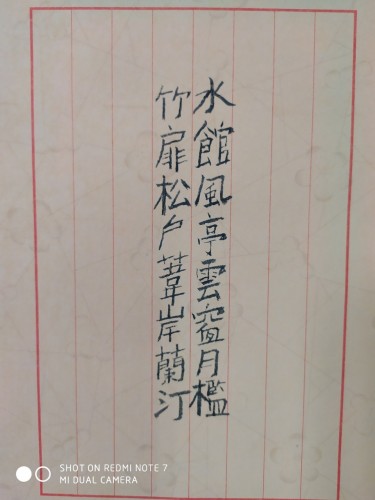 水館風亭雲窗月檻
竹扉松戶葦岸蘭汀
SHOT ON REDMI NOTE 7
MI DUAL CAMERA